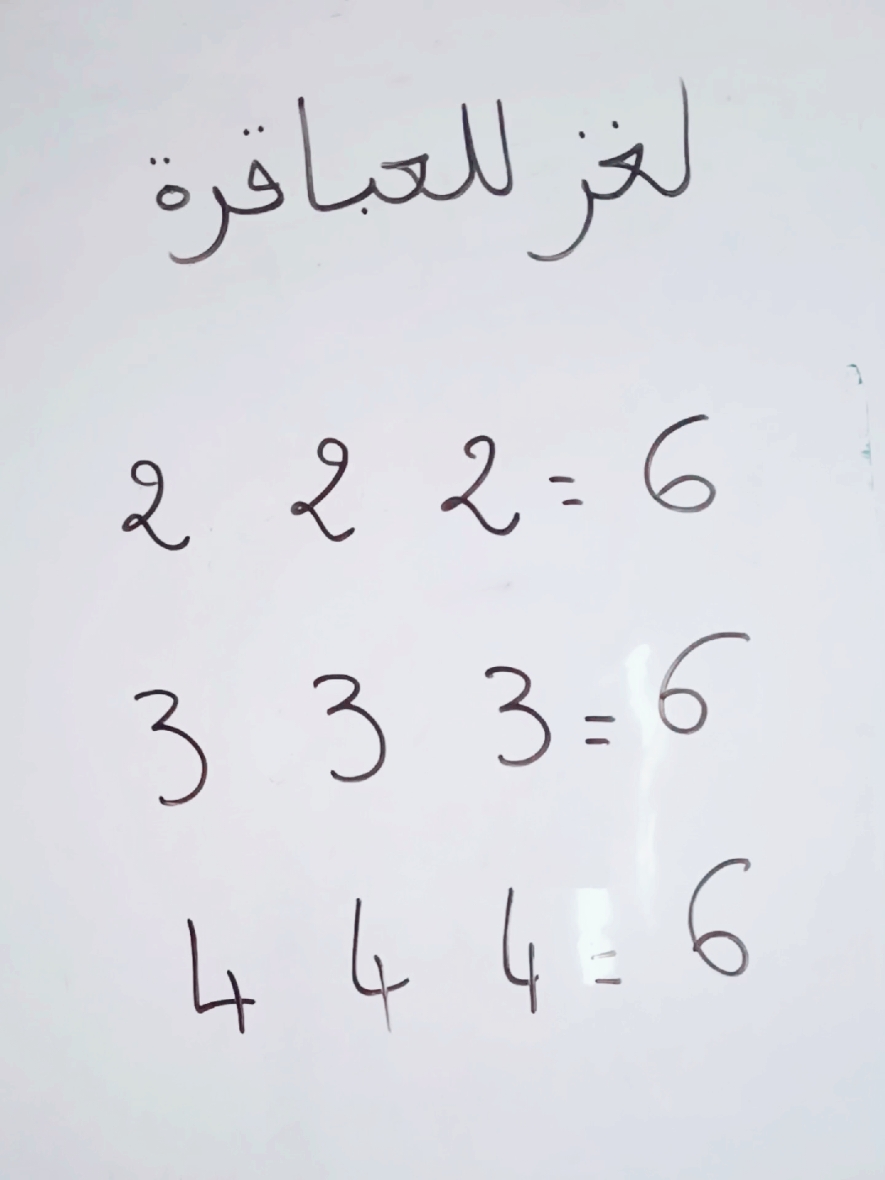 لغز للعباقرة
2 2 2 = 6
3 3 3 = 6
4 4 4 = 6